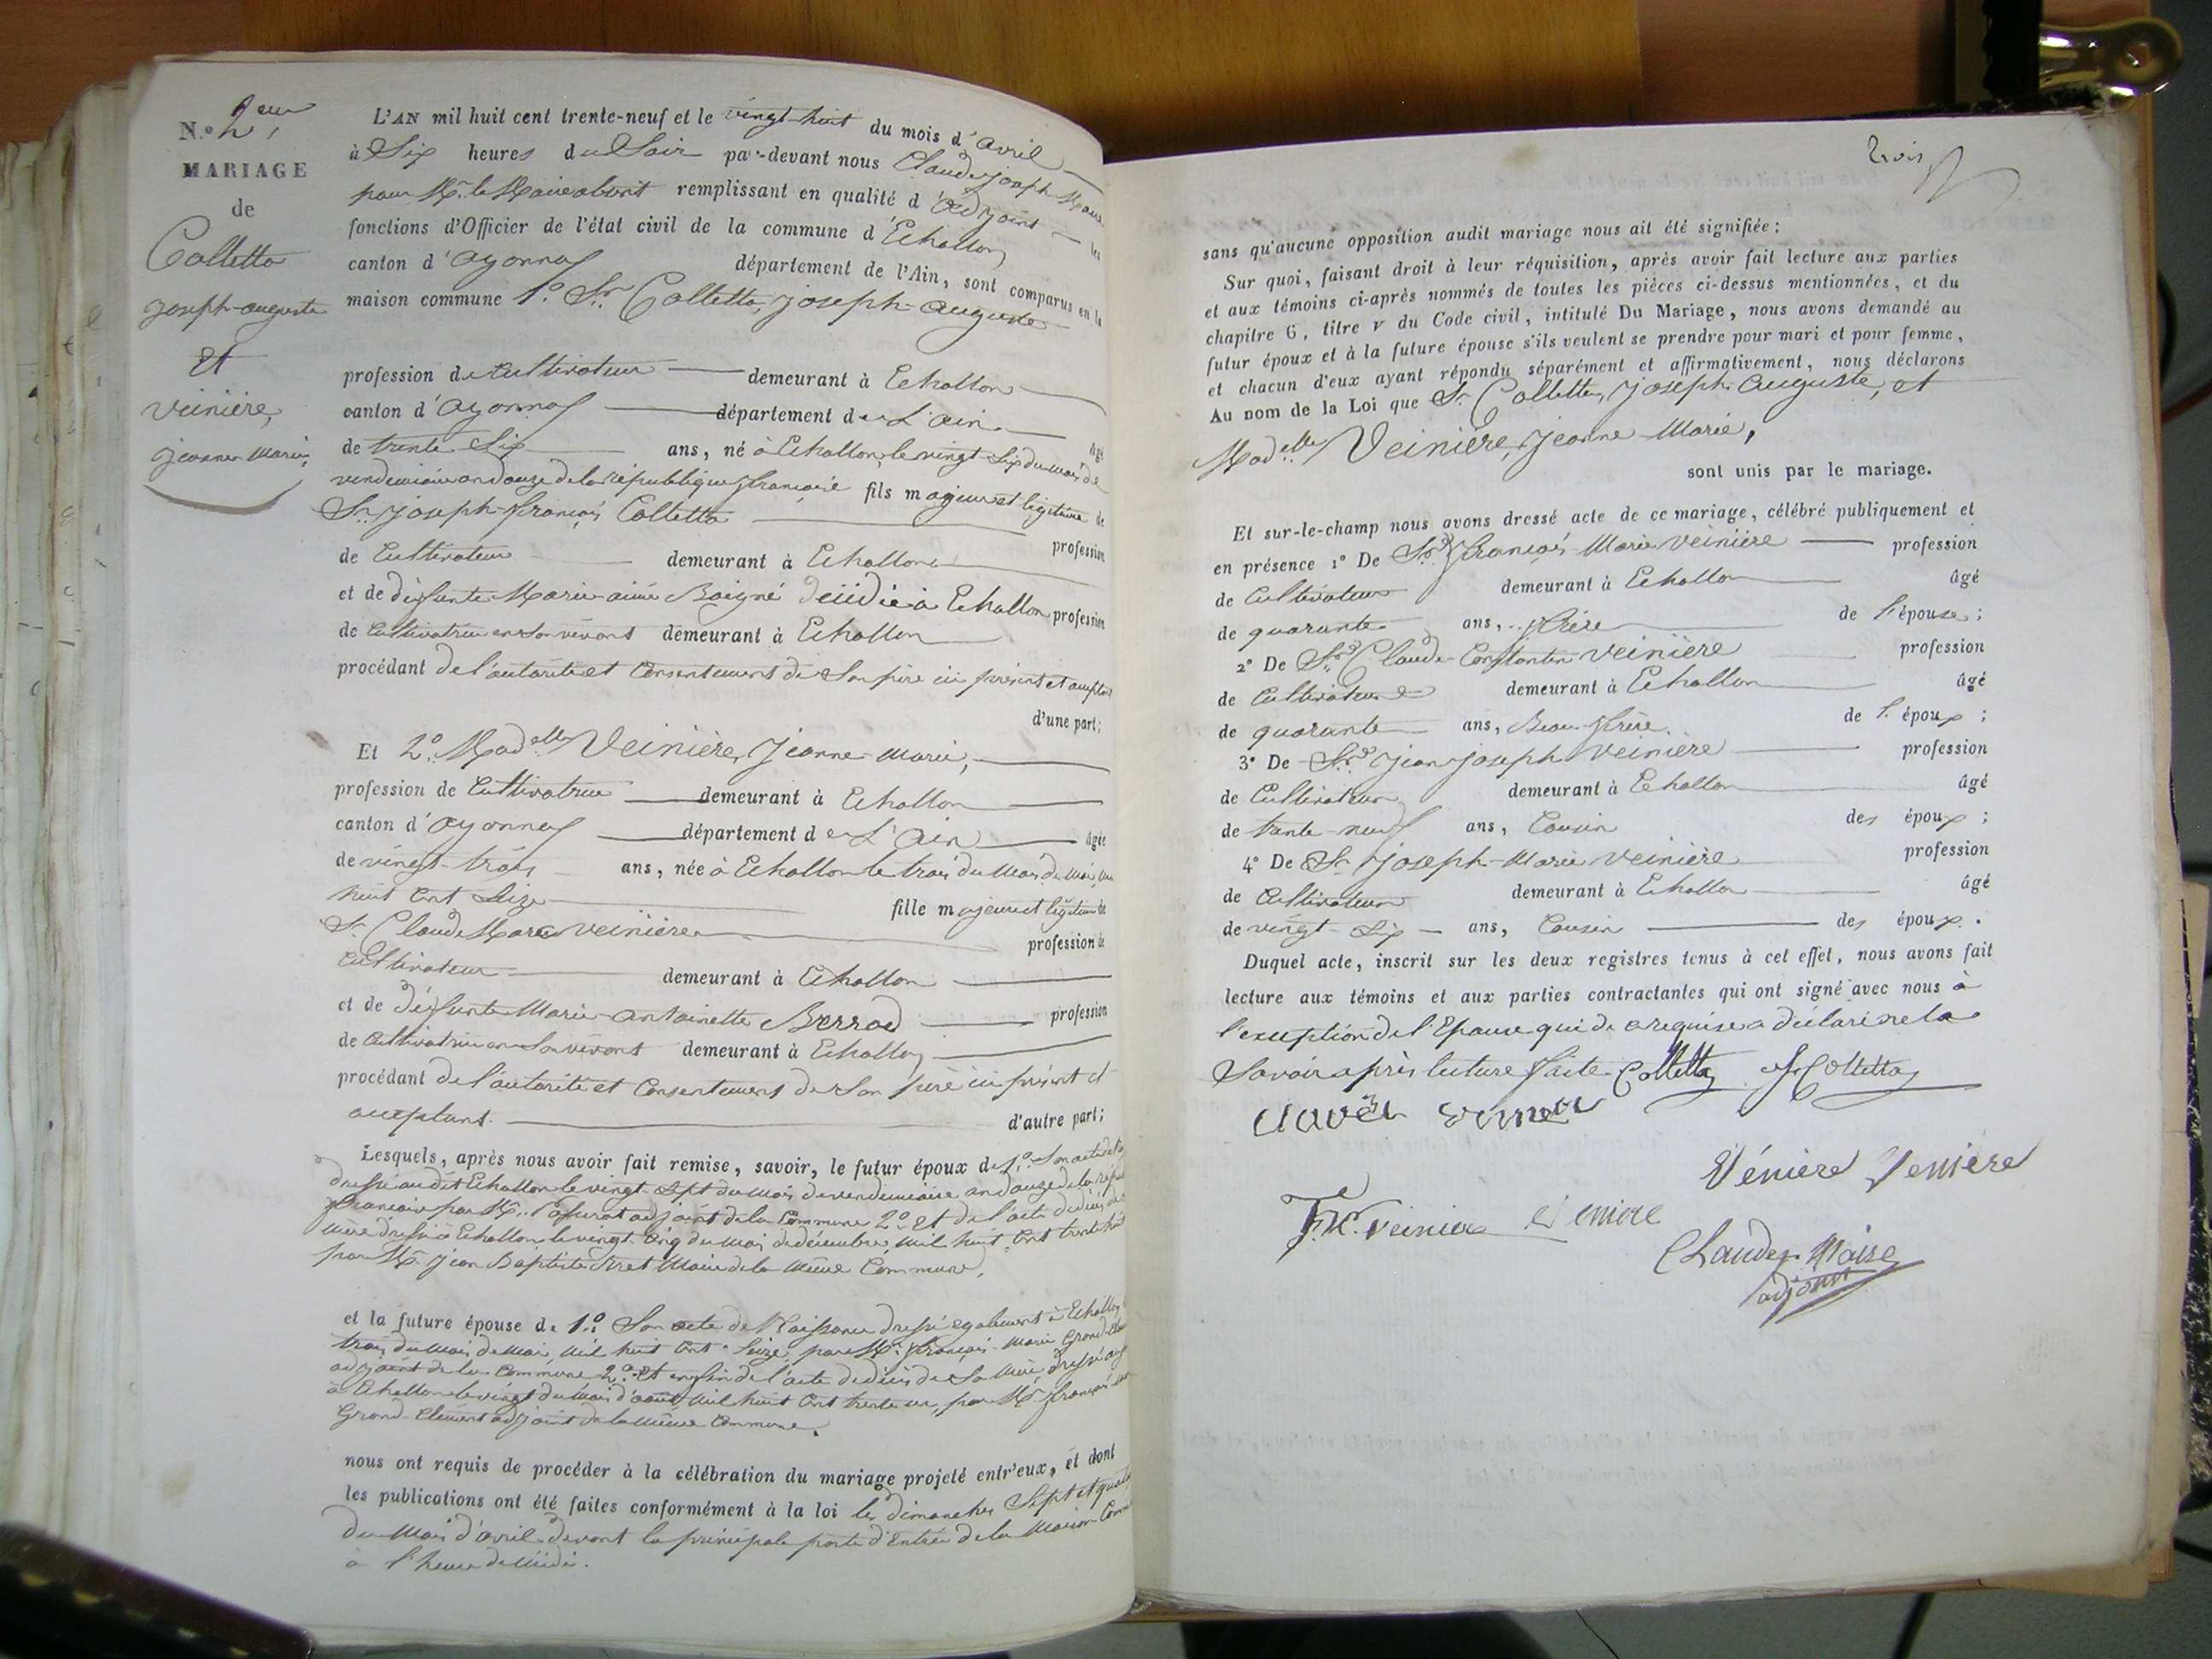 N.º 2.eme
MARIAGE
de
Colletta
joseph-auguste
Et
Veinière,
jeanne-Marie,
L'AN mil huit cent trente-neuf et le vingt-huit du mois d'avril
à Six heures du Soir par-devant nous Claude-joseph
pour Mr. le Maire absent remplissant en qualité d'adjoint les
fonctions d'Officier de l'état civil de la commune d'Echallon
canton d'oyonnax département de l'Ain, sont comparus en la
maison commune 1.º Sr. Colletta, joseph-auguste
profession de cultivateur demeurant à Echallon
canton d'oyonnax département de L'ain âgé
de trente Six ans, né à Echallon, le vingt-Six du mois de
vendemiaire an douze de la république française fils majeur et légitime de
Sr. joseph-françois Colletta profession
de Cultivateur demeurant à Echallon
et de défunte Marie-aimé décédée à Echallon profession
de cultivatrice en son vivant demeurant à Echallon
procédant de l'autorité et Consentement de Son père ici présent et acceptant
d'une part;
Et 2.º Madelle Veinière, Jeanne-Marie,
profession de Cultivatrice demeurant à Echallon
canton d'oyonnax département de L'ain âgée
de vingt-trois ans, née à Echallon le trois du Mois de Mai, mil
huit cent Seize fille majeure et légitime de
Sr. Claude Marie Veinière profession de
Cultivateur demeurant à Echallon
et de défunte Marie-antoinette Berrod profession
de Cultivatrice en Son vivant demeurant à Echallon
procédant de l'autorité et Consentement de Son père ici présent et
acceptant. d'autre part;
Lesquels, après nous avoir fait remise, savoir, le futur époux de 1.º Son acte de
dressé audit Echallon le vingt-Sept du Mois de vendemiaire an douze de la
française par Mr. adjoint de la Commune 2.º Et de l'acte de décès de
mère dressé à Echallon le vingt-cinq du Mois de décembre, mil huit Cent trente
par Mr. jean Baptiste Maire de la même Commune,
et la future épouse de 1.º Son acte de Naissance dressé également à Echallon
trois du Mois de Mai, mil huit Cent Seize, par Mr. françois-Marie Grand
adjoint de la Commune 2.º Et enfin de l'acte de décès de Sa Mère, dressé
à Echallon le vingt du Mois d'août, mil huit Cent trente un, par Mr. françois
Grand-Clément adjoint de la même Commune.
nous ont requis de procéder à la célébration du mariage projeté entr'eux, et dont
les publications ont été faites conformément à la loi les dimanches Sept et
du Mois d'avril devant la principale porte d'Entrée de la Maison
à l'heure de Midi.
trois
sans qu'aucune opposition audit mariage nous ait été signifiée;
Sur quoi, faisant droit à leur réquisition, après avoir fait lecture aux parties
et aux témoins ci-après nommés de toutes les pièces ci-dessus mentionnées, et du
chapitre 6, titre V du Code civil, intitulé Du Mariage, nous avons demandé au
futur époux et à la future épouse s'ils veulent se prendre pour mari et pour femme,
et chacun d'eux ayant répondu séparément et affirmativement, nous déclarons
Au nom de la Loi que Sr. Colletta, joseph-auguste, et
Madelle Veinière, jeanne-Marie,
sont unis par le mariage.
Et sur-le-champ nous avons dressé acte de ce mariage, célébré publiquement et
en présence 1º De Sr. françois-Marie Veinière profession
de Cultivateur demeurant à Echallon âgé
de quarante ans, frère de l'épouse;
2º De Sr. Claude-Constantin Veinière profession
de Cultivateur demeurant à Echallon âgé
de quarante ans, Beau-frère de l'époux;
3º De Sr. jean-joseph Veinière profession
de Cultivateur demeurant à Echallon âgé
de trente-neuf ans, Cousin des époux;
4º De Sr. joseph-Marie Veinière profession
de Cultivateur demeurant à Echallon âgé
de vingt-Six ans, Cousin des époux.
Duquel acte, inscrit sur les deux registres tenus à cet effet, nous avons fait
lecture aux témoins et aux parties contractantes qui ont signé avec nous à
l'exception de l'Epouse qui de ce requise a déclaré ne le
Savoir après lecture faite Colletta Colletta
Vénière Veniere
F.M. Veinière
Claude Moise
adjoint